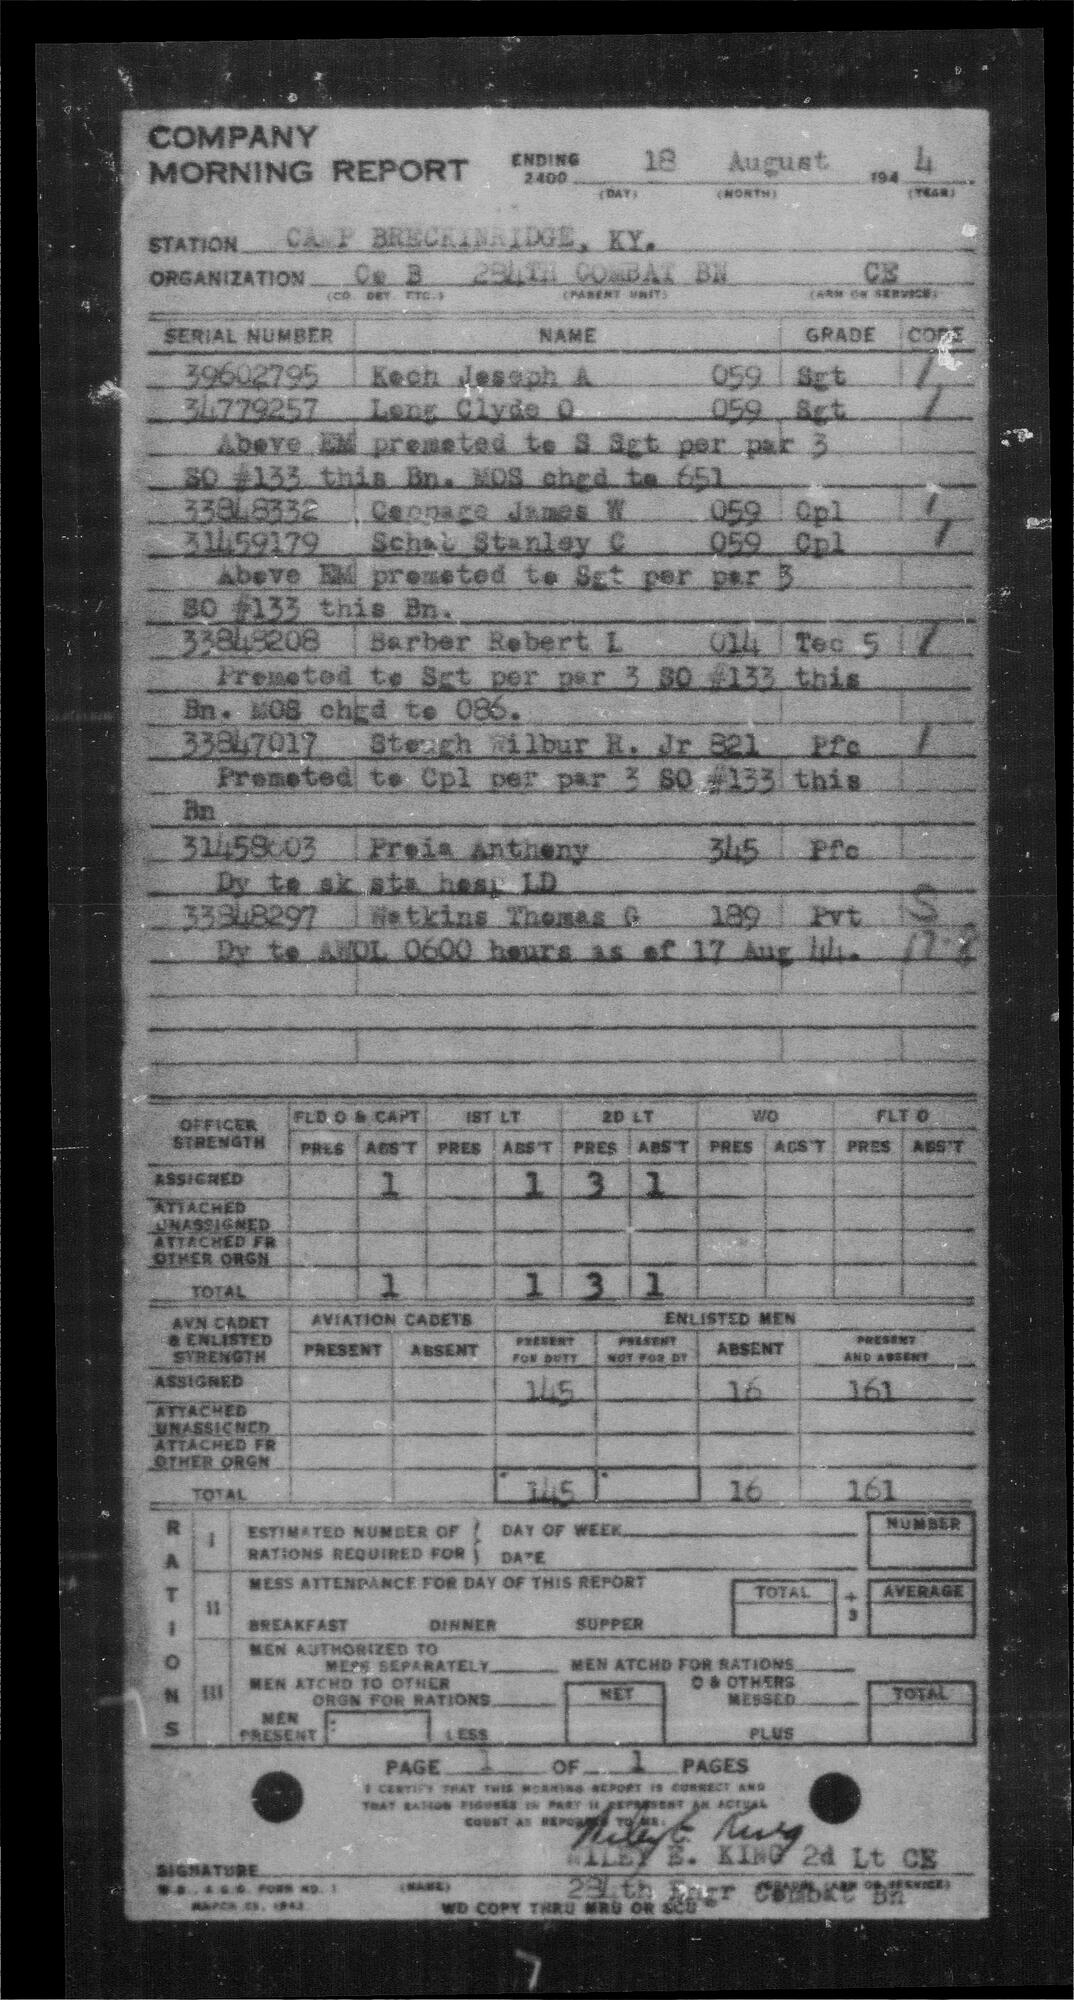 COMPANY
MORNING REPORT ENDING 2400 18 August 194 4
(DAY) (MONTH) (YEAR)
STATION CAMP BRECKINRIDGE, KY.
ORGANIZATION Co B 284TH COMBAT BN CE
(CO. DET. ETC.) (PARENT UNIT) (ARM OR SERVICE)
SERIAL NUMBER NAME GRADE CODE
39602795 Kech Joseph A 059 Sgt /
34779257 Long Clyde O 059 Sgt /
Above EM promoted to S Sgt per par 3
SO #133 this Bn. MOS chgd to 651
33848332 James W 059 Cpl /
31459179 Schab Stanley C 059 Cpl /
Above EM promoted to Sgt per par 3
SO #133 this Bn.
33848208 Barber Robert L 014 Tec 5 /
Promoted to Sgt per par 3 SO #133 this
Bn. MOS chgd to 086.
33847017 Stough Wilbur R. Jr 821 Pfc /
Promoted to Cpl per par 3 SO #133 this
Bn
31458003 Preia Anthony 345 Pfc
Dy to sk sta hosp LD
33848297 Watkins Thomas G 189 Pvt S
Dy to AWOL 0600 hours as of 17 Aug 44. 17-8
OFFICER STRENGTH FLD O & CAPT 1ST LT 2D LT WO FLT O
PRES ABS'T PRES ABS'T PRES ABS'T PRES ABS'T PRES ABS'T
ASSIGNED 1 1 3 1
ATTACHED UNASSIGNED
ATTACHED FR OTHER ORGN
TOTAL 1 1 3 1
AVN CADET & ENLISTED STRENGTH AVIATION CADETS ENLISTED MEN
PRESENT ABSENT PRESENT FOR DUTY PRESENT NOT FOR DY ABSENT PRESENT AND ABSENT
ASSIGNED 145 16 161
ATTACHED UNASSIGNED
ATTACHED FR OTHER ORGN
TOTAL 145 16 161
RATIONS
I ESTIMATED NUMBER OF RATIONS REQUIRED FOR DAY OF WEEK DATE NUMBER
II MESS ATTENDANCE FOR DAY OF THIS REPORT TOTAL ÷ 3 AVERAGE
BREAKFAST DINNER SUPPER
III MEN AUTHORIZED TO MESS SEPARATELY MEN ATCHD FOR RATIONS
MEN ATCHD TO OTHER ORGN FOR RATIONS NET O & OTHERS MESSED TOTAL
MEN PRESENT LESS PLUS
PAGE 1 OF 1 PAGES
I CERTIFY THAT THIS MORNING REPORT IS CORRECT AND
THAT RATION FIGURES IN PART II REPRESENT AN ACTUAL
COUNT AS REPORTED TO ME.
Wiley E. King
WILEY E. KING 2d Lt CE
SIGNATURE
W.D., A.G.O. FORM NO. 1 (NAME) (GRADE) (ARM OR SERVICE)
284th Engr Combat Bn
MARCH 25, 1943 WD COPY THRU MRU OR SCU
7